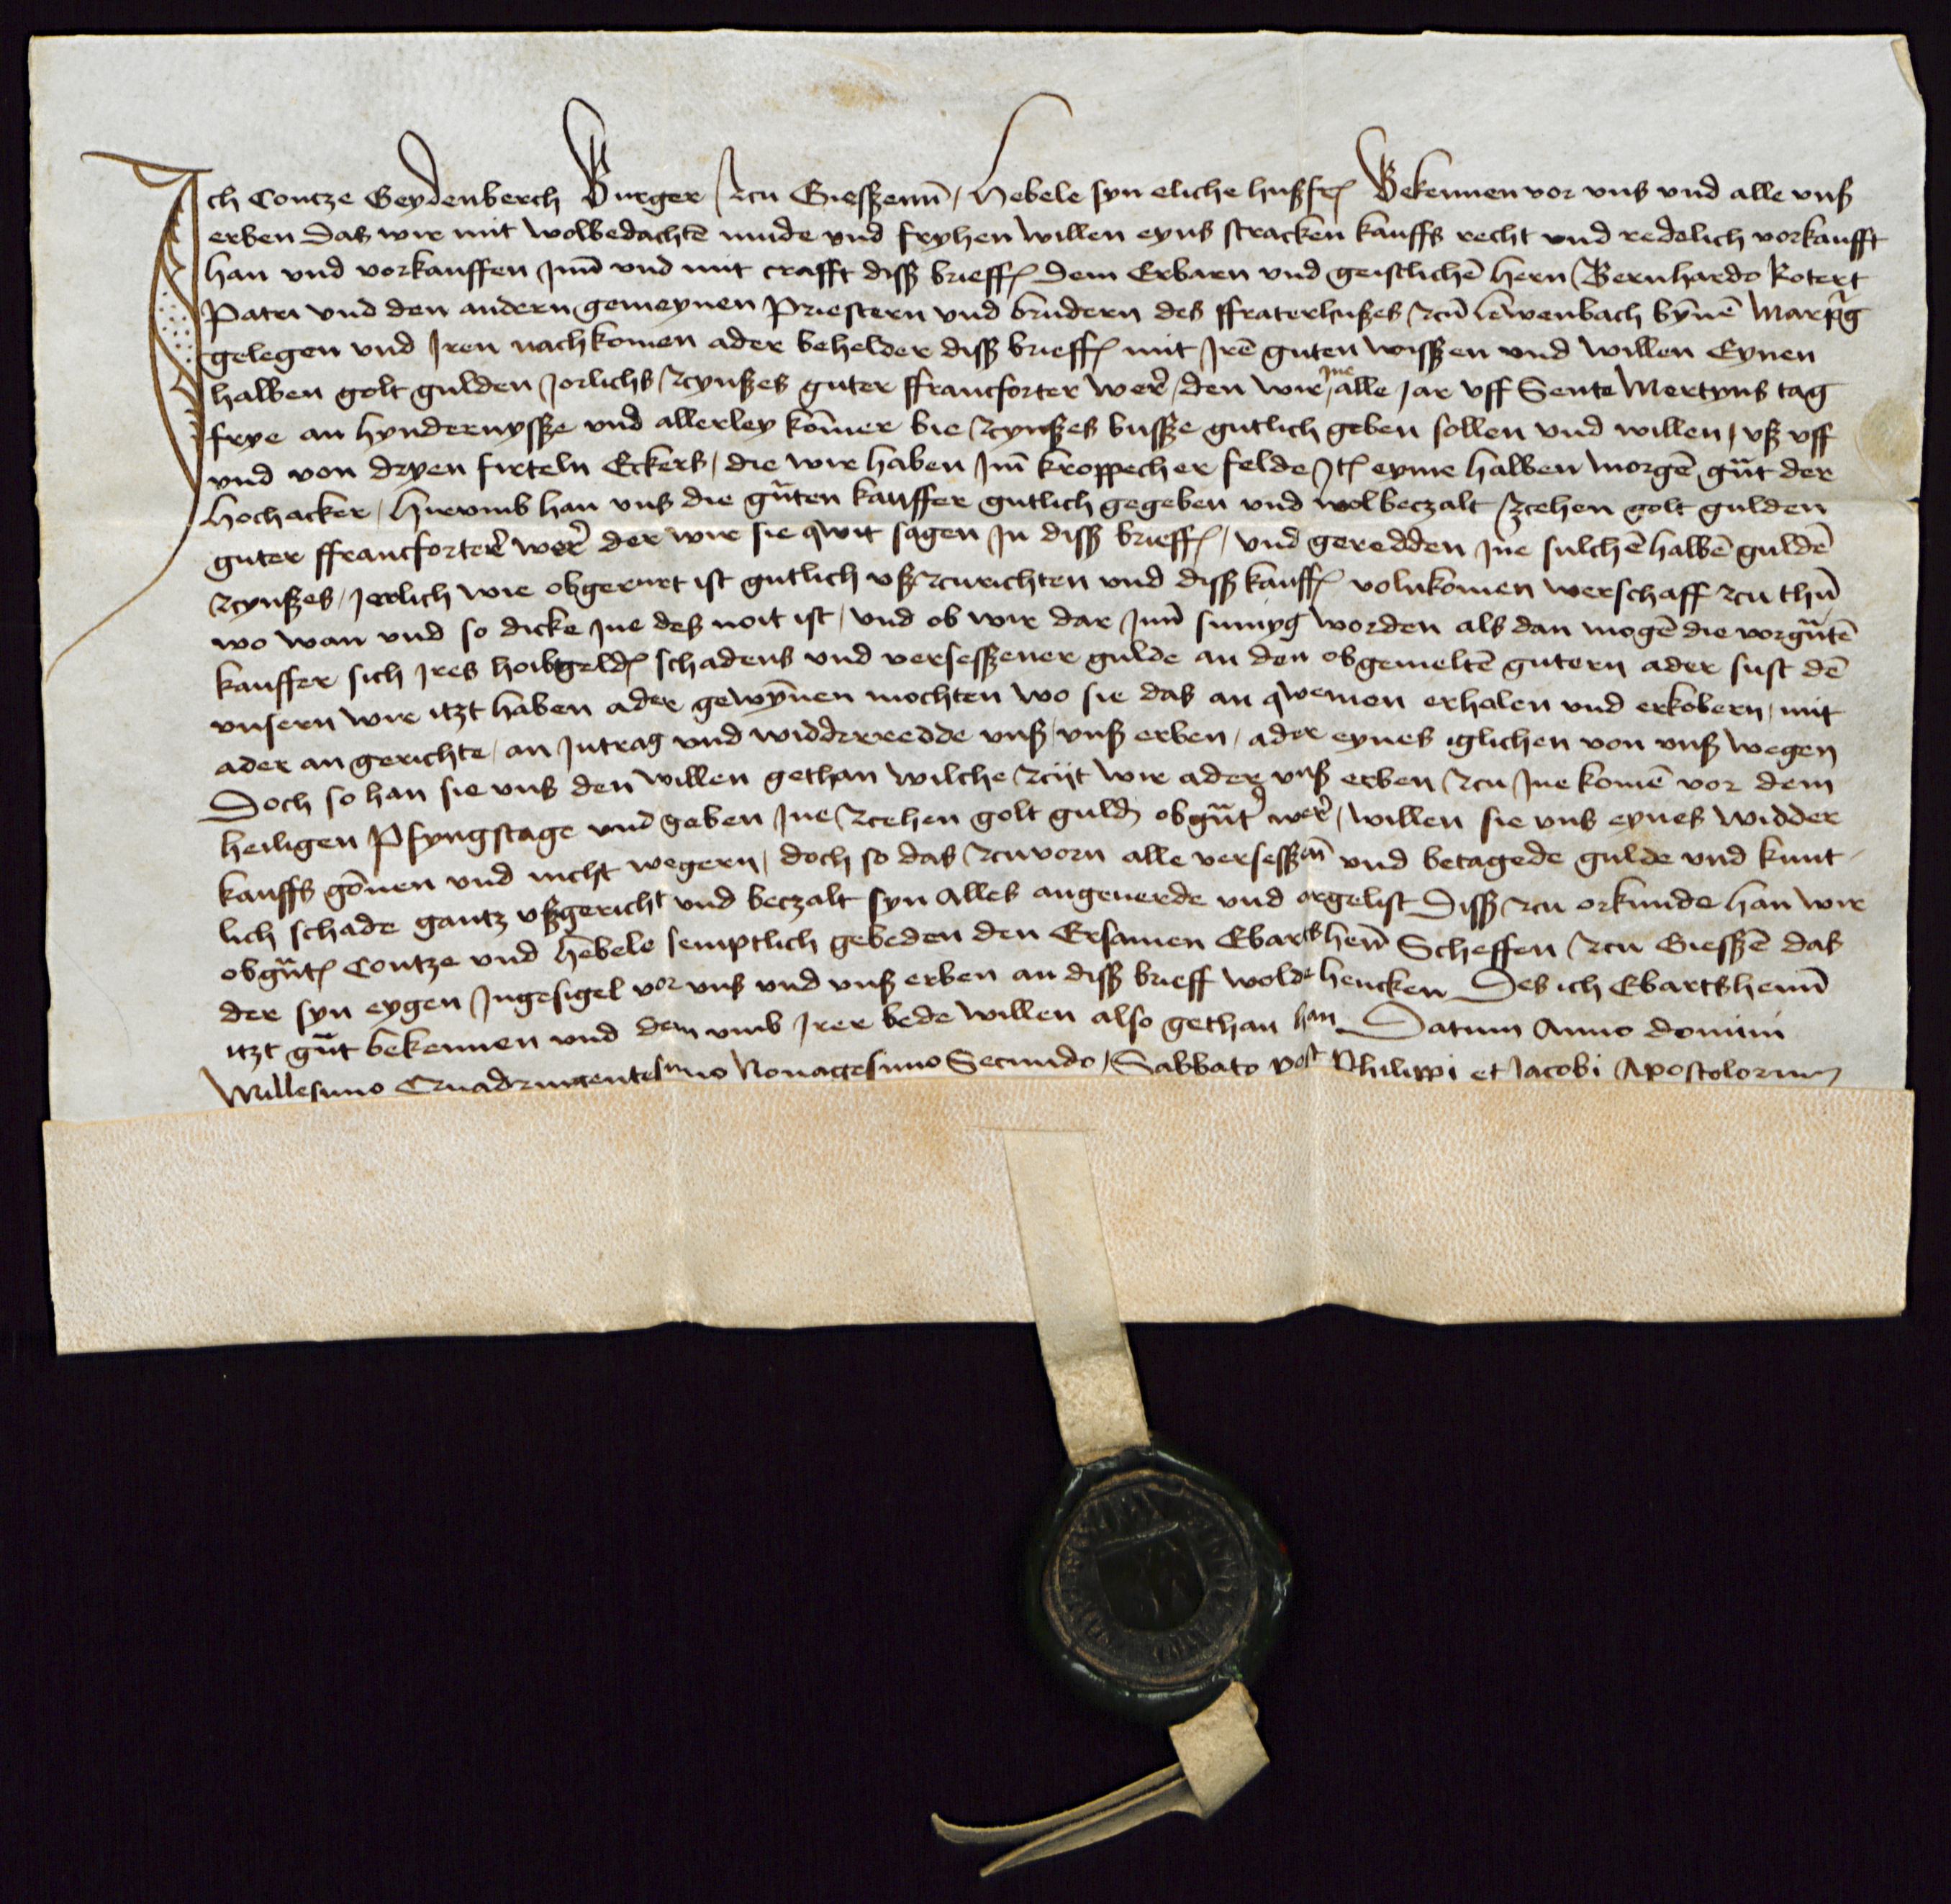 Ich Contze Geydenberch Burger zcu Gieſßenn̄ / Hebele ſyn eliche huſzfrͣ Bekennen vor vns vnd alle vnſz
erben das wir mit wolbedachtē mude vnd fryhen willen eyns ſtracken kauffs recht vnd redelich vorkaufft
han vnd vorkauffen Jnn̄ vnd mit crafft diſſz brieffꝭ dem Erbarn vnd geiſtlichē hern Bernhardo Rotert
Patri vnd den andern gemeynen Prieſtern vnd brudern des ffraterhuſzes zcū lēwenbach byn̄ē Marpg̃
gelegen vnd Jren nachkomen ader behelder diſſz brieffꝭ mit Jrē guten wiſſzen vnd willen Eynen
halben golt gulden Jorlichs zcynſzes guter ffrancforter wer̄ / den wir Jne alle Jar vff Sente Mertyns tag
frye an hynderniyſſze vnd allerley kōmer bie zcynſzes buſſze gutlich geben ſollen vnd willen / vſz vff
vnd von dryen firteln Eckers / die wir haben Jm̄ kroppecher felde Jtꝭ eyme halben morgē gn̄t der
hochacker / hirvmb han vns die gn̄ten kauffer gutlich gegeben vnd wol beczalt zcehen golt gulden
guter ffrancforter̄ wer̄ der wir ſie qwit ſagen Jn diſſz brieffꝭ / vnd geredden Jne ſulchē halbē guldē
zcynſzes / Jerlich wie obgerurt iſt gutlich vſz zcurichten vnd diſſz kauffꝭ volnkomen werſchaff zcu thūn
wo wan vnd ſo dicke Jne des noit iſt / vnd ob wir dar Jnn̄ ſumyg worden als dan mogē die vorgn̄tē
kauffer ſich Jres hoibtgeldꝭ ſchadens vnd verſeſſzener gulde an den obgemeltē gutern ader ſuſt dē
vnſern wir itzt haben ader gewyn̄nen mochten wo ſie das an qwemen erhalen vnd erkobern / mit
ader an gerichte / an Jntrag vnd widderredde vnſz / vnſz erben / ader eynes iglichen von vnſz wegen
Doch ſo han ſie vns den willen gethan wilche zcijt wir ader vnſz erben zcu Jne komē vor dem
heiligen Pfyngſtage vnd geben Jne zcehen golt guldꝭ obgn̄tꝰ wer̄ / willen ſie vns eynes widder
kauffs gōnen vnd nicht wegern / doch ſo das zcuvorn alle verſeſſzen̄ vnd betagede gulde vnd kunt-
lich ſchade gantz vſzgericht vnd beczalt ſyn Alles angeuerde vnd argeliſt Diſſz zcu orkunde han wir
obgn̄tꝭ Contze vnd hēbele ſemptlich gebeden den Erſamen Ebartshen̄ Scheffen zcu Gieſſzē das
der ſyn eygen Jngeſigel vor vns vnd vnſz erben an diſſz brieff wolde hencken Des ich Ebartshenn̄
itzt gn̄t bekennen vnd dem vmb Jrer bede willen alſo gethan han Datum Anno domini
Milleſimo Quadringenteſimo Nonageſimo Secundo / Sabbato poſt Philippi et Jacobi Apoſtolorum